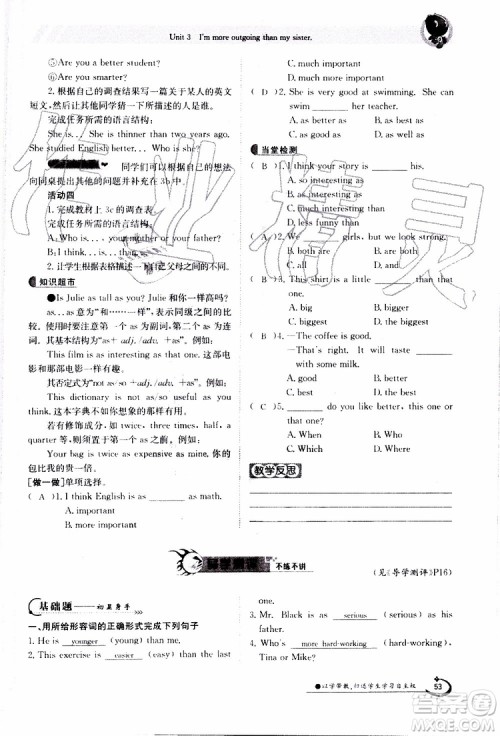 Unit 3 I'm more outgoing than my sister.
⑤Are you a better student?
⑥Are you smarter?
2. 根据自己的调查结果写一篇关于某人的英文
短文,并让其他同学猜一下所写的人是谁。
完成任务所需要的语言结构:
She is... She is thinner than two years ago.
She studied English better... Who is she?
同学们可以根据自己的想法
向同桌提出其他的问题并补充在 3b 中
活动四
1. 完成教材上 3c 的调查表。
完成任务所需要的语言结构:
A: Who is... your father or your father?
B: ... than...
2. 让学生根据表格描述一下父母之间的不同。
知识超市
●Is Julie as tall as you? 朱莉和你一样高吗?
as... as 意为“和……一样……”,表示同级的比
较,使用时要注意第一个 as 为副词,第二个 as 为
连词。其基本结构为:as+adj. /adv. +as。例如:
This film is as interesting as that one. 这部电
影和那部电影一样有趣。
其否定式为“not as+adj. /adv. +as”。例如:
This dictionary is not as/so useful as you
think. 这本字典不如你想象的那样有用。
若有修饰成分,如 twice, three times, half, a
quarter 等,则须置于第一个 as 之前。例如:
Your bag is twice as expensive as mine. 你的
包比我的包贵一倍。
[做一做]单项选择。
( A )1. I think English is ______ as math.
A. as important
B. more important
C. much important
D. important
( B )2. She is good at swimming. She can
swim ______ her teacher.
A. as good as
B. as well as
C. as good
D. as better as
当堂检测
( B )1. I think your story is ______ his.
A. so interesting as
B. as interesting as
C. much interesting than
D. less funny than
( A )2. We ______ girls, but we look strong.
A. are all
B. all are
C. all
D. all be
( B )3. This shirt is a little ______ than that one.
A. big
B. bigger
C. biggest
D. biggest
( A )4. —The coffee is good.
—That's right. It will taste ______
with some milk.
A. good
B. better
C. best
D. the best
( C )5. ______ do you like better, this one or
that one?
A. What
B. Who
C. Which
D. Where
教学反思
不练不讲
(见《导学测评》P16)
基础题——初显身手
一、用所给形容词的正确形式完成下列句子
1. He is younger (young) than me.
2. Exercise one is easier (easy) than Exercise
one.
3. Mr. Black is as serious (serious) as
before.
4. Who's more hard-working (hard-working),
Tina or Mike?
●以学带教,打造学生学习自主权
53